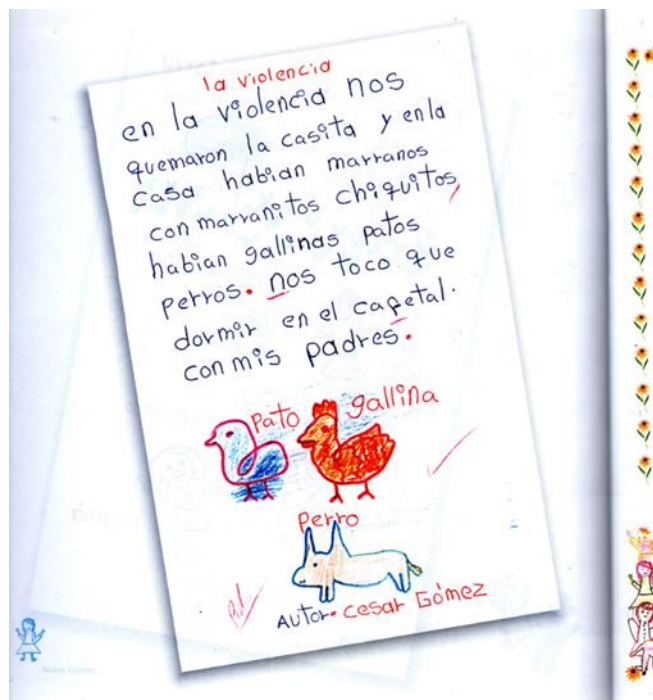 la violencia
en la violencia nos
quemaron la casita y en la
casa habian marranos
con marranitos chiquitos,
habian gallinas patos
perros. nos toco que
dormir en el cafetal.
con mis padres.
Pato gallina
Perro
AUTOR. cesar Gómez